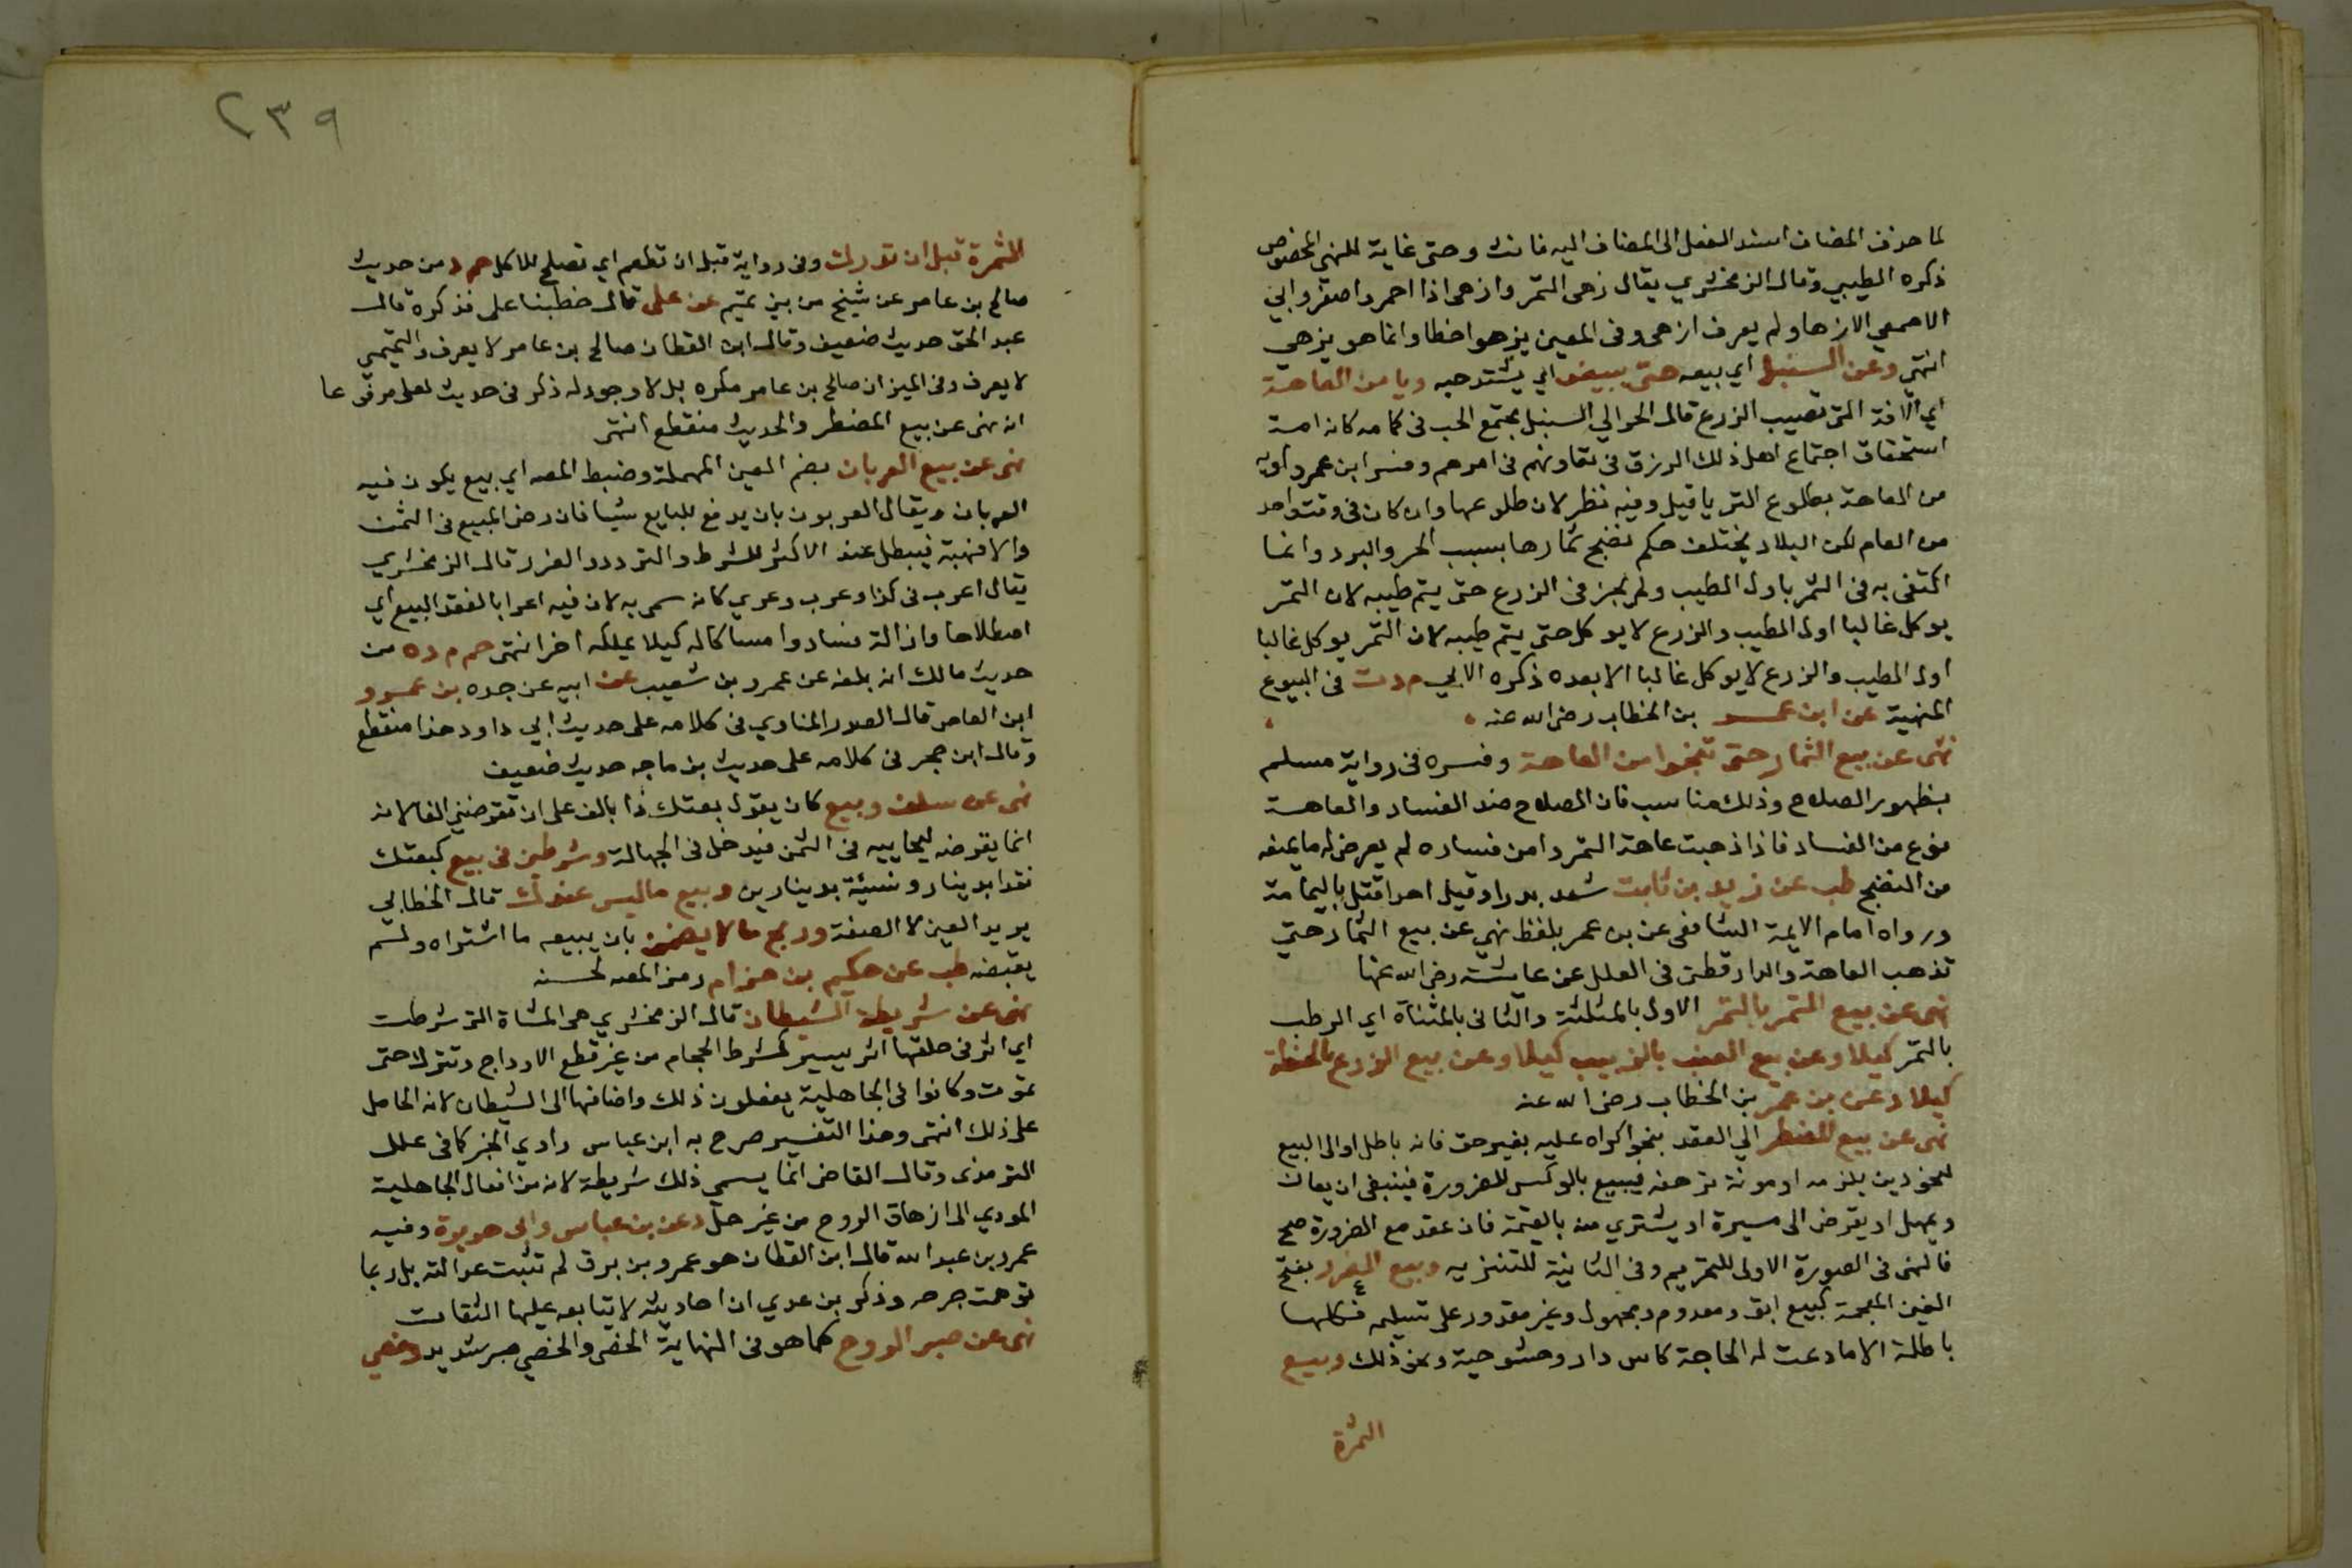 لما حذف المضاف اسند الفعل الى المضاف اليه فانث وحتى غاية للنهي المخصوص
ذكره الطيبي وقال الزمخشري يقال زهى الثمر وازهى اذا احمر واصفر وابي
الاصمعي الازها ولم يعرف ازهى وفي المعين يزهو اخطا وانما هو يزهي
انتهى وعن السنبل اي بيعه حتى يبيض اي يشتد حبه ويامن العاهة
اي الافة التي تصيب الزرع قال الحرالي السنبل مجتمع الحب في كمامه كانه امة
استحقاق اجتماع اهل ذلك الرزق في تعاونهم في امرهم وفسر ابن عمر راويه
من العاهة بطلوع الثريا قيل وفيه نظر لان طلوعها وان كان في وقت واحد
من العام لكن البلاد يختلف حكم نضج ثمارها بسبب الحر والبرد وانما
اكتفى به في الثمر باول الطيب ولم يجز في الزرع حتى يتم طيبه لان الثمر
يوكل غالبا اول الطيب والزرع لا يوكل حتى يتم طيبه لان الثمر يوكل غالبا
اول الطيب والزرع لا يوكل غالبا الا بعده ذكره الابي م د ت في البيوع
المنهية عن ابن عمر بن الخطاب رضي الله عنه
نهى عن بيع الثمار حتى تنجوا من العاهة وفسره في رواية مسلم
بظهور الصلاح وذلك مناسب فان الصلاح ضد الفساد والعاهة
نوع من الفساد فاذا ذهبت عاهة الثمر وامن فساده لم يعرض له ما يمنعه
من النضج طب عن زيد بن ثابت شهد بدرا وقيل احد اقتل باليمامة
ورواه امام الايمة الشافعي عن بن عمر بلفظ نهي عن بيع الثمار حتى
تذهب العاهة والدارقطني في العلل عن عايشة رضي الله عنها
نهى عن بيع الثمر بالتمر الاول بالمثلثة والثاني بالمثناة اي الرطب
بالتمر كيلا وعن بيع العنب بالزبيب كيلا وعن بيع الزرع بالحنطة
كيلا د عن بن عمر بن الخطاب رضي الله عنه
نهى عن بيع المضطر الي العقد بنحو اكراه عليه بغير حق فانه باطل او الى البيع
لنحو دين يلزمه او مونة ترهقه فيبيع بالوكس للضرورة فينبغي ان يعان
ويمهل او يقرض الى ميسرة او يشتري منه بالقيمة فان عقد مع الضرورة صح
فالنهي في الصورة الاولى للتحريم وفي الثانية للتنزيه وبيع الغرر بفتح
الغين المعجمة كبيع ابق ومعدوم ومجهول وغير مقدور على تسليمه فكلها
باطلة الا ما دعت له الحاجة كاس دار وحشو جبة ونحو ذلك وبيع
الثمرة
٢٣٩
الثمرة قبل ان تدرك وفي رواية قبل ان تطعم اي تصلح للاكل حم د من حديث
صالح بن عامر عن شيخ من بني تميم عن علي قال خطبنا علي فذكره قال
عبد الحق حديث ضعيف وقال ابن القطان صالح بن عامر لا يعرف والتميمي
لا يعرف وفي الميزان صالح بن عامر نكرة بل لا وجود له ذكر في حديث لعلي مرفوعا
انه نهى عن بيع المضطر والحديث منقطع انتهى
نهى عن بيع العربان بضم العين المهملة وضبط المص اي بيع يكون فيه
العربان ويقال العربون بان يدفع للبايع شيا فان رضي المبيع فمن الثمن
والا فهبة فيبطل عند الاكثر للشرط والتردد والغرر قال الزمخشري
يقال اعرب في كذا وعرب وعربي كانه سمي به لان فيه اعرابا لعقد البيع اي
اصطلاحا وازالة فساد وامساكا له كيلا يملكه اخر انتهى حم م د ه من
حديث مالك انه بلغه عن عمرو بن شعيب عن ابيه عن جده بن عمرو
ابن العاص قال الصدر المناوي في كلامه على حديث ابي داود هذا منقطع
وقال ابن حجر في كلامه على حديث بن ماجه حديث ضعيف
نهى عن سلف وبيع كان يقول بعتك ذا بالف على ان تقرضني الفا لانه
انما يقرضه ليحابيه في الثمن فيدخل في الجهالة وشرطين في بيع كبعتك
نقدا بدينار ونسيئة بدينارين وبيع ما ليس عندك قال الخطابي
يريد العين لا الصفة وربح ما لا يضمن بان يبيعه ما اشتراه ولم
يقبضه طب عن حكيم بن حزام رمز المص لحسنه
نهى عن شريطة الشيطان قال الزمخشري هي الشاة التي شرطت
اي اثر في حلقها اثر يسير كشرط الحجام من غير قطع الاوداج وتترك حتى
تموت وكانوا في الجاهلية يفعلون ذلك واضافها الى الشيطان لانه الحامل
على ذلك انتهى وهذا التفسير صرح به ابن عباس راوي الخبر كما في علل
الترمذي وقال القاضي انما يسمي ذلك شريطة لانه من افعال الجاهلية
المودي الى ازهاق الروح من غير حل د عن بن عباس وابى هريرة وفيه
عمرو بن عبد الله قال ابن القطان هو عمرو بن برق لم تثبت عدالته بل ربما
توهمت جرحه وذكر بن عدي ان احاديثه لا يتابعه عليها الثقات
نهى عن صبر الروح كما هو في النهاية الخصي والخصي صبر شديد وخصي